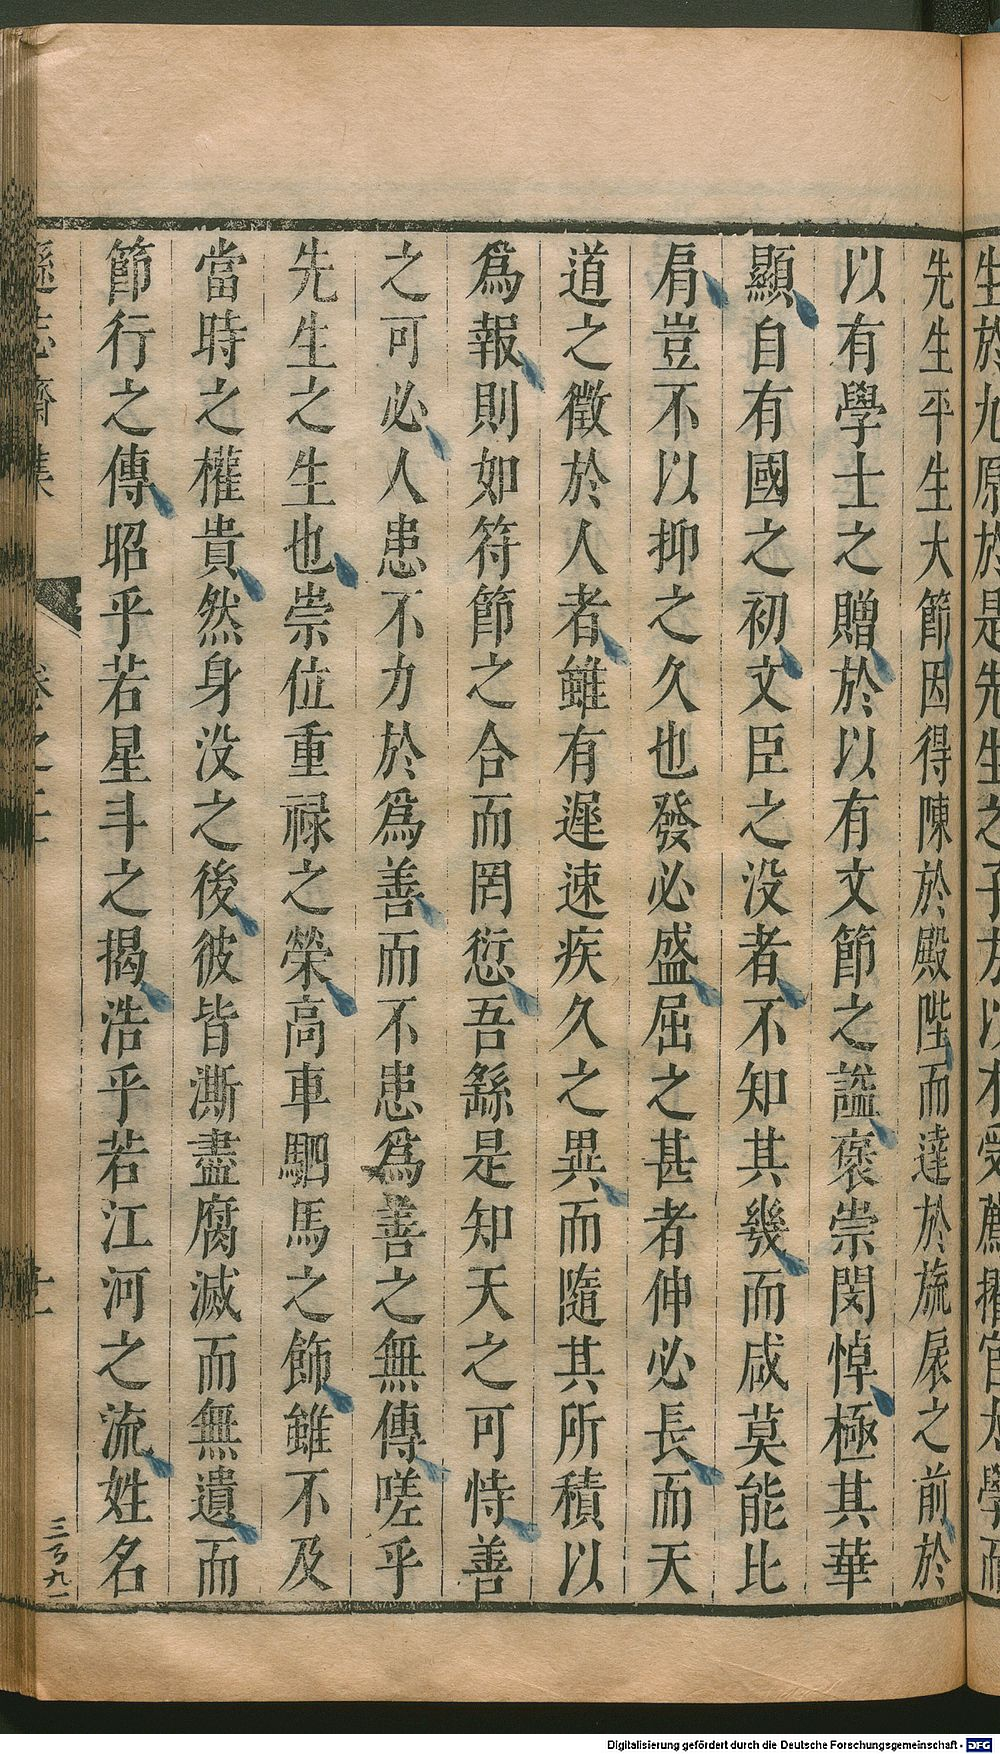 生於九原於是先生之子
先生平生大節因得陳於殿陛而達於旒扆之前於
以有學士之贈於以有文節之諡褒崇閔悼極其華
顯自有國之初文臣之没者不知其幾而咸莫能比
肩豈不以抑之久也發必盛屈之甚者伸必長而天
道之徵於人者雖有遲速疾久之異而隨其所積以
爲報則如符節之合而罔愆吾繇是知天之可恃善
之可必人患不力於爲善而不患爲善之無傳嗟乎
先生之生也崇位重祿之榮高車駟馬之飾雖不及
當時之權貴然身没之後彼皆澌盡腐滅而無遺而
節行之傳昭乎若星斗之揭浩乎若江河之流姓名
遜志齋集
卷之二
三百九二
Digitalisierung gefördert durch die Deutsche Forschungsgemeinschaft - DFG